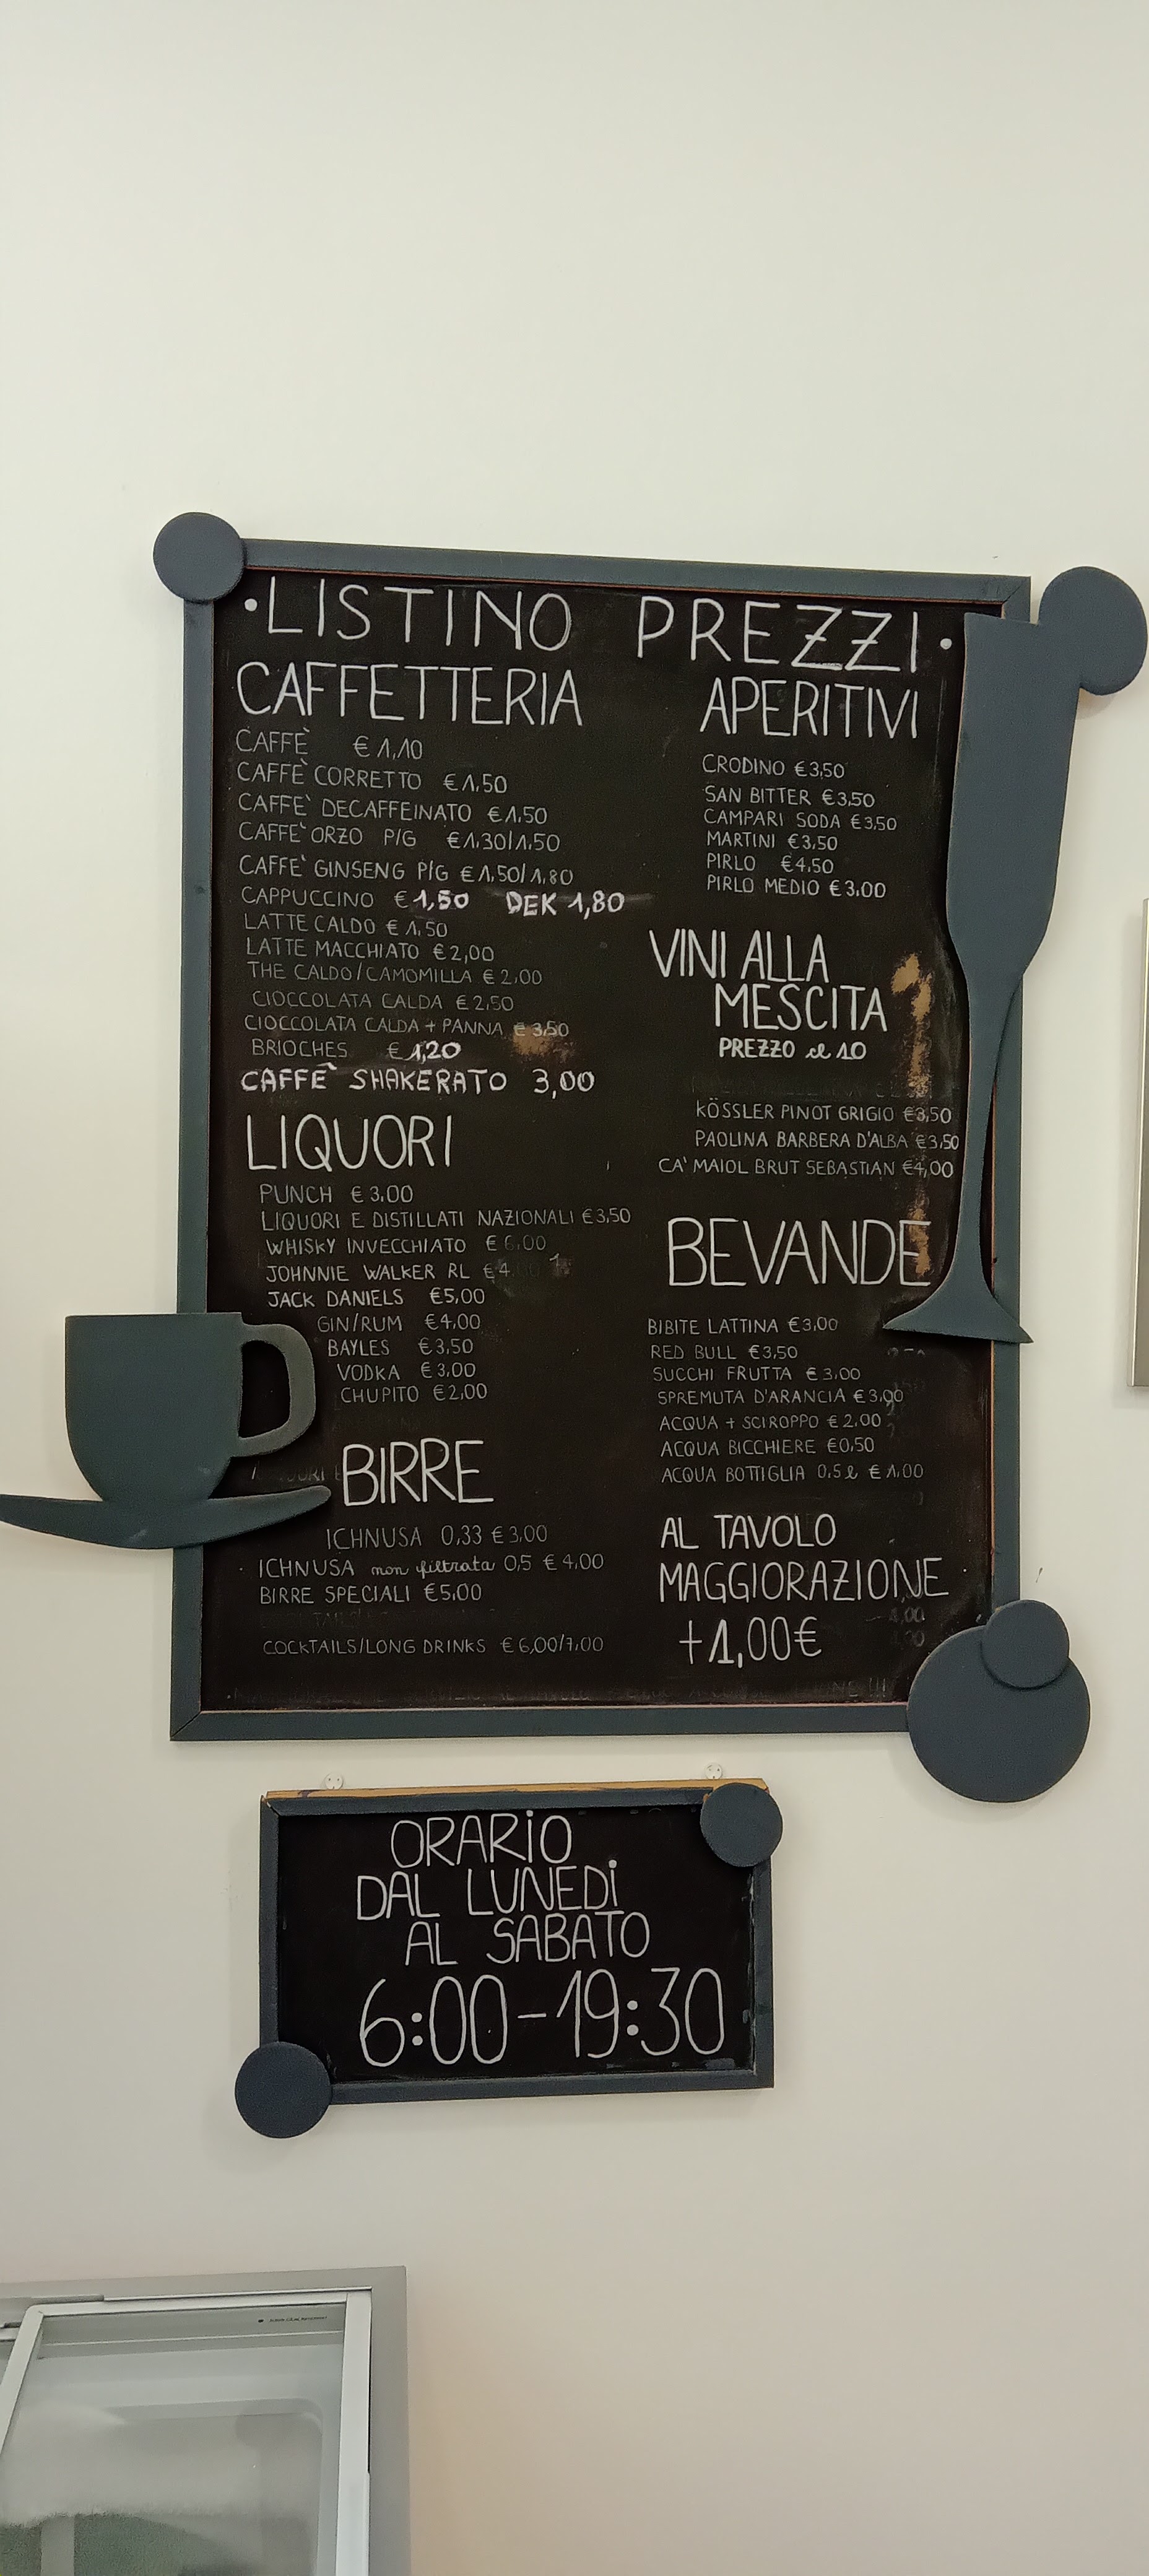 ·LISTINO PREZZI·
CAFFETTERIA
CAFFÈ € 1,10
CAFFÈ CORRETTO € 1,50
CAFFE` DECAFFEINATO € 1,50
CAFFE` ORZO P/G € 1,30/1,50
CAFFE` GINSENG P/G € 1,50/1,80
CAPPUCCINO € 1,50 DEK 1,80
LATTE CALDO € 1,50
LATTE MACCHIATO € 2,00
THE CALDO/CAMOMILLA € 2,00
CIOCCOLATA CALDA € 2,50
CIOCCOLATA CALDA + PANNA € 3,50
BRIOCHES € 1,20
CAFFE` SHAKERATO 3,00
LIQUORI
PUNCH € 3,00
LIQUORI E DISTILLATI NAZIONALI € 3,50
WHISKY INVECCHIATO € 6,00
JOHNNIE WALKER RL € 4
JACK DANIELS €5,00
GIN/RUM €4,00
BAYLES €3,50
VODKA €3,00
CHUPITO €2,00
BIRRE
ICHNUSA 0,33 € 3,00
· ICHNUSA non filtrata 0,5 € 4,00
BIRRE SPECIALI €5,00
COCKTAILS/LONG DRINKS € 6,00/7,00
APERITIVI
CRODINO €3,50
SAN BITTER €3,50
CAMPARI SODA €3,50
MARTINI €3,50
PIRLO €4,50
PIRLO MEDIO €3,00
VINI ALLA
MESCITA
PREZZO cl 10
KÖSSLER PINOT GRIGIO €3,50
PAOLINA BARBERA D'ALBA €3,50
CA' MAIOL BRUT SEBASTIAN €4,00
BEVANDE
BIBITE LATTINA €3,00
RED BULL €3,50
SUCCHI FRUTTA € 3,00
SPREMUTA D'ARANCIA € 3,00
ACQUA + SCIROPPO € 2,00
ACQUA BICCHIERE €0,50
ACQUA BOTTIGLIA 0,5 l € 1,00
AL TAVOLO
MAGGIORAZIONE
+1,00€
ORARIO
DAL LUNEDì
AL SABATO
6:00-19:30